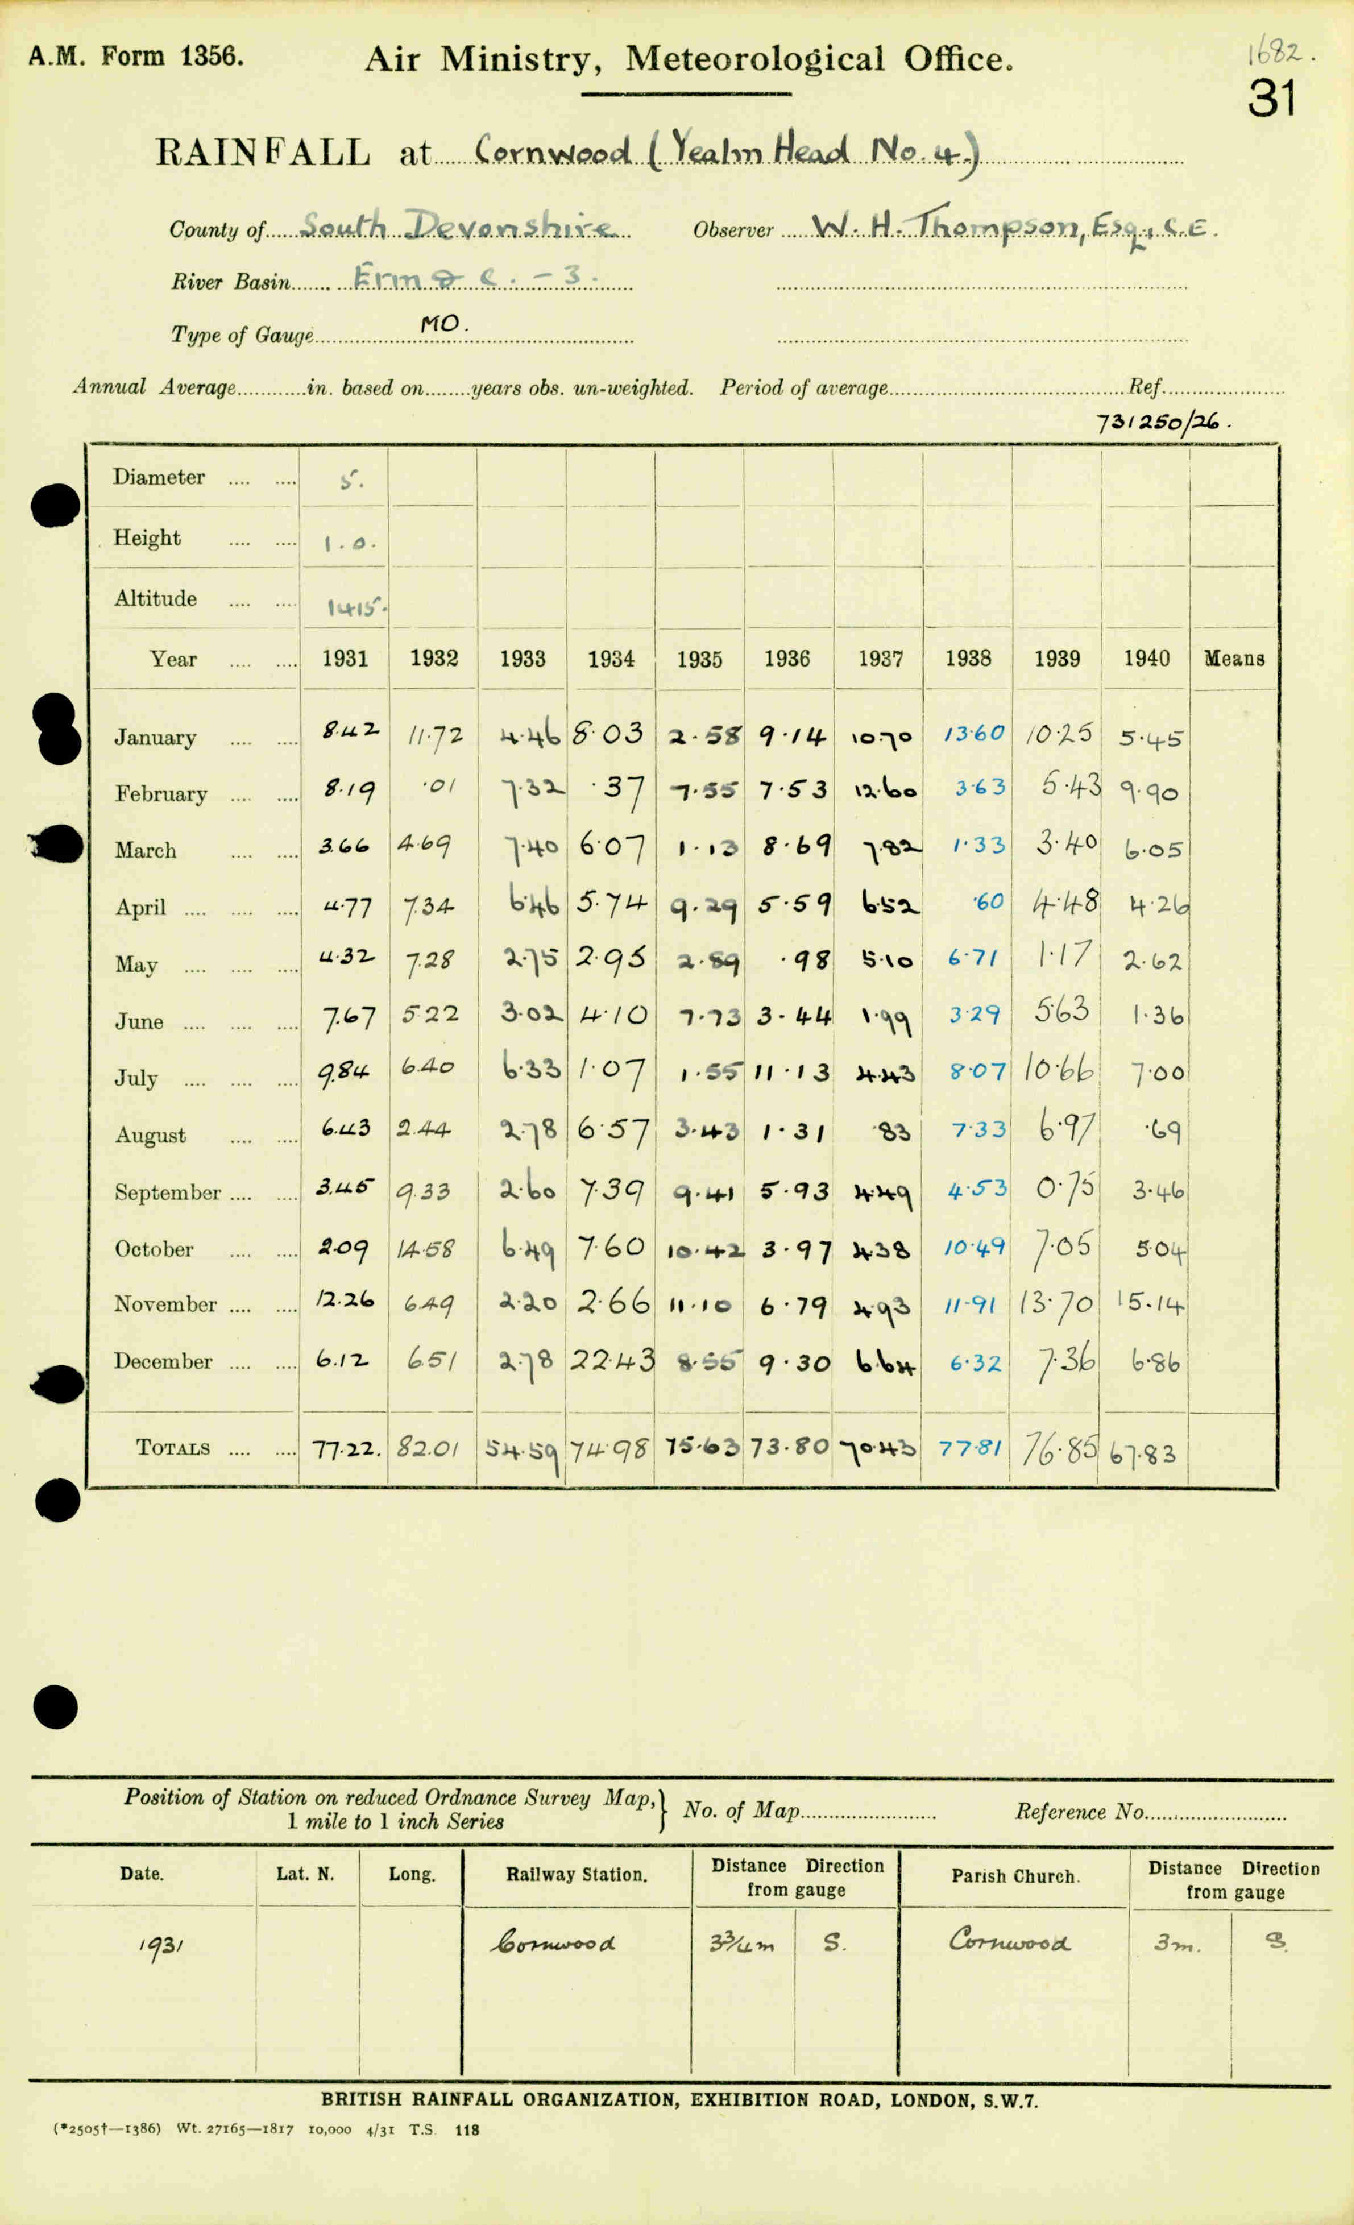 A.M. Form 1356.
Air Ministry, Meteorological Office.
1682.
31
RAINFALL at Cornwood (Yealm Head No. 4.)
County of South Devonshire Observer W. H. Thompson, Esq., C.E.
River Basin Erm & C. - 3.
Type of Gauge MO.
Annual Average in. based on years obs. un-weighted. Period of average Ref.
731250/26.
Diameter 5.
Height 1.0.
Altitude 1415.
Year 1931 1932 1933 1934 1935 1936 1937 1938 1939 1940 Means
January 8.42 11.72 4.46 8.03 2.58 9.14 10.70 13.60 10.25 5.45
February 8.19 .01 7.32 .37 7.55 7.53 12.60 3.63 5.43 9.90
March 3.66 4.69 7.40 6.07 1.13 8.69 7.82 1.33 3.40 6.05
April 4.77 7.34 6.46 5.74 9.29 5.59 6.52 .60 4.48 4.26
May 4.32 7.28 2.75 2.95 2.89 .98 5.10 6.71 1.17 2.62
June 7.67 5.22 3.02 4.10 7.73 3.44 1.99 3.29 5.63 1.36
July 9.84 6.40 6.33 1.07 1.55 11.13 4.43 8.07 10.66 7.00
August 6.43 2.44 2.78 6.57 3.43 1.31 .83 7.33 6.97 .69
September 3.45 9.33 2.60 7.39 9.41 5.93 4.49 4.53 0.75 3.46
October 2.09 14.58 6.49 7.60 10.42 3.97 4.38 10.49 7.05 5.04
November 12.26 6.49 2.20 2.66 11.10 6.79 4.93 11.91 13.70 15.14
December 6.12 6.51 2.78 22.43 8.55 9.30 6.64 6.32 7.36 6.86
TOTALS 77.22. 82.01 54.59 74.98 75.63 73.80 70.43 77.81 76.85 67.83
Position of Station on reduced Ordnance Survey Map,} No. of Map Reference No.
1 mile to 1 inch Series
Date. Lat. N. Long. Railway Station. Distance Direction from gauge Parish Church. Distance Direction from gauge
1931 Cornwood 3¾m S. Cornwood 3m. S.
BRITISH RAINFALL ORGANIZATION, EXHIBITION ROAD, LONDON, S.W.7.
(*2505†—1386) Wt. 27165—1817 10,000 4/31 T.S. 118